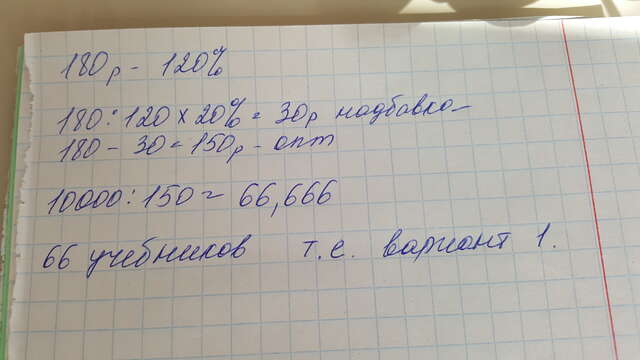 180р - 120%
180 : 120 х 20% = 30р надбавка -
180 - 30 = 150р - опт
10000 : 150 = 66,666
66 учебников т.е. вариант 1.